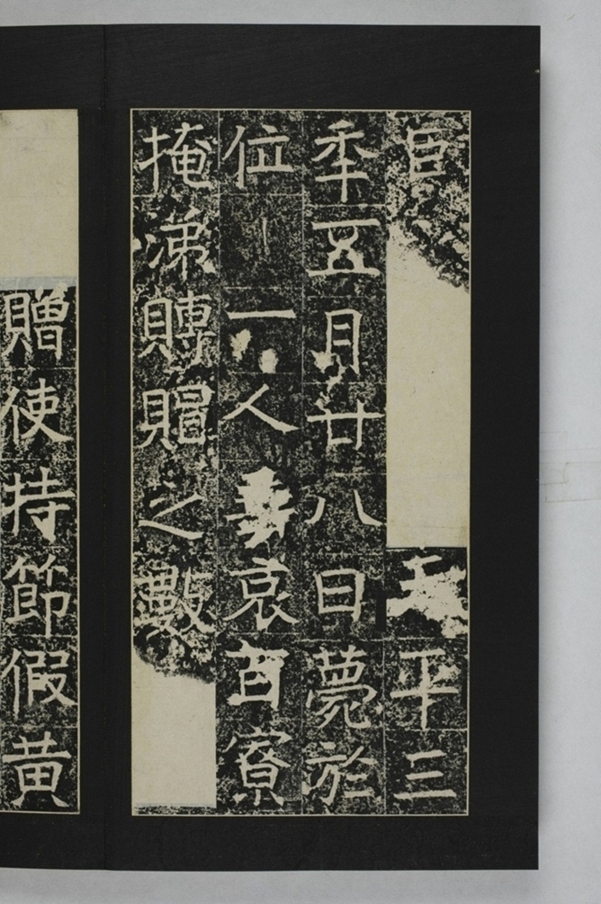 臣天平三
年五月廿八日薨於
位一人哀百寮
掩涕賻賵之數
贈使持節假黃